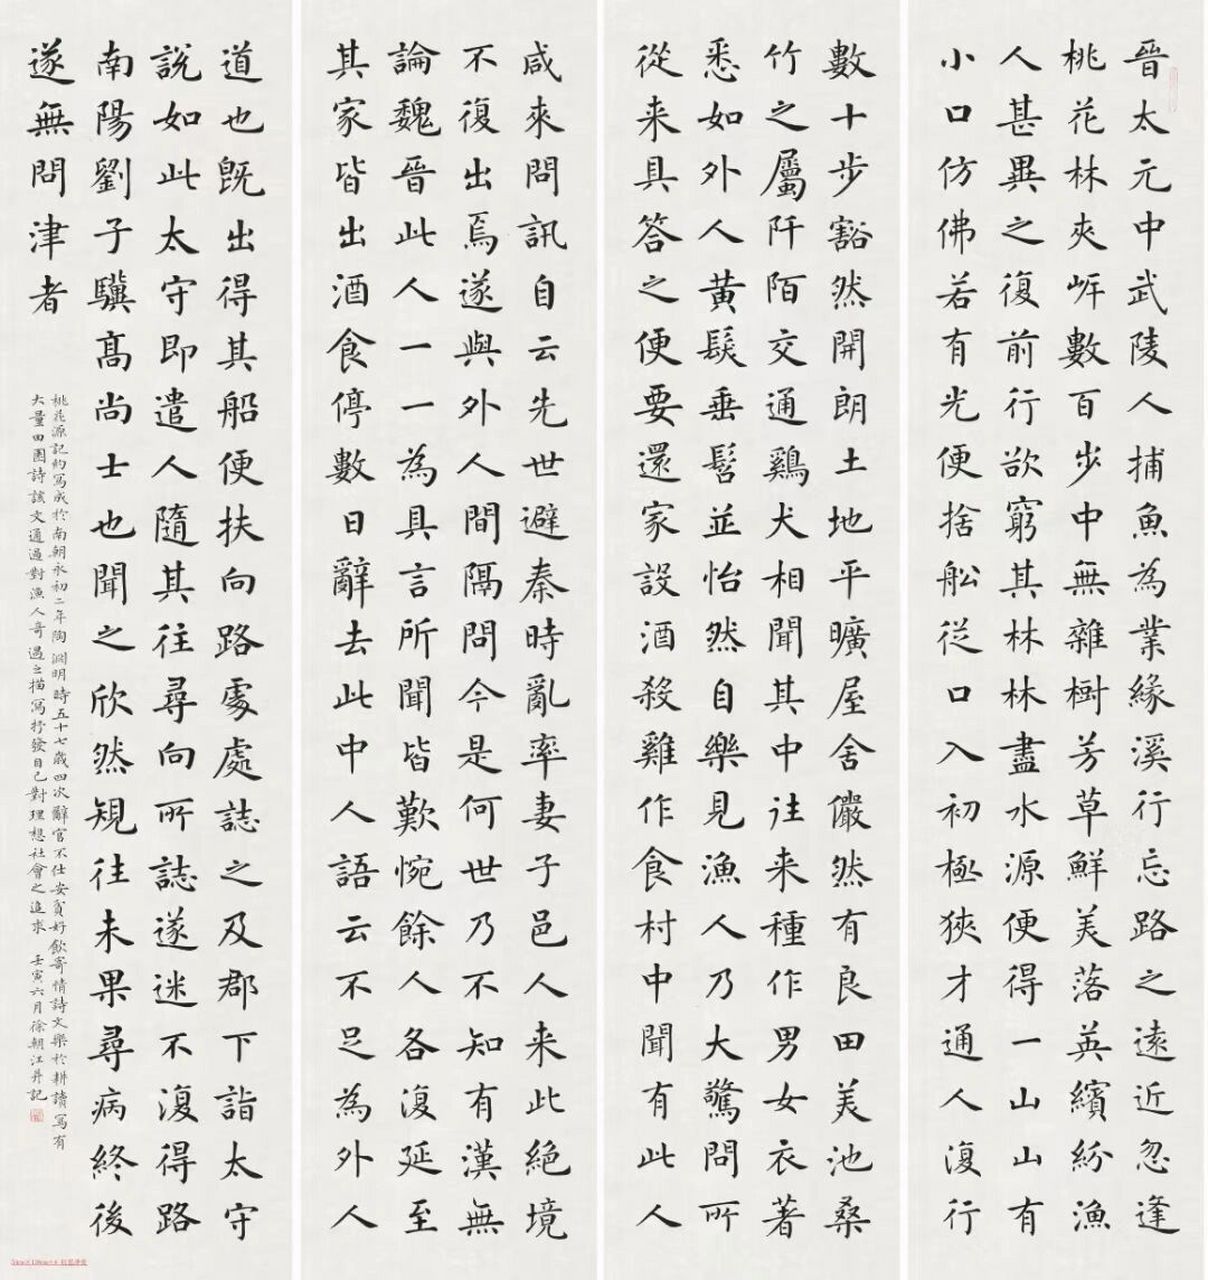 晉太元中武陵人捕魚為業緣溪行忘路之遠近忽逢
桃花林夾岸數百步中無雜樹芳草鮮美落英繽紛漁
人甚異之復前行欲窮其林林盡水源便得一山山有
小口仿佛若有光便捨船從口入初極狹才通人復行
數十步豁然開朗土地平曠屋舍儼然有良田美池桑
竹之屬阡陌交通鷄犬相聞其中往来種作男女衣著
悉如外人黃髮垂髫並怡然自樂見漁人乃大驚問所
從来具答之便要還家設酒殺雞作食村中聞有此人
咸來問訊自云先世避秦時亂率妻子邑人来此絕境
不復出焉遂與外人間隔問今是何世乃不知有漢無
論魏晉此人一一為具言所聞皆歎惋餘人各復延至
其家皆出酒食停數日辭去此中人語云不足為外人
道也既出得其船便扶向路處處誌之及郡下詣太守
說如此太守即遣人隨其往尋向所誌遂迷不復得路
南陽劉子驥高尚士也聞之欣然規往未果尋病終後
遂無問津者
桃花源記約寫成於南朝永初二年陶淵明時五十七歲四次辭官不仕安貧好飲寄情詩文樂於耕讀寫有
大量田園詩該文通過對漁人奇遇之描寫抒發自己對理想社會之追求 壬寅六月徐朝江并記